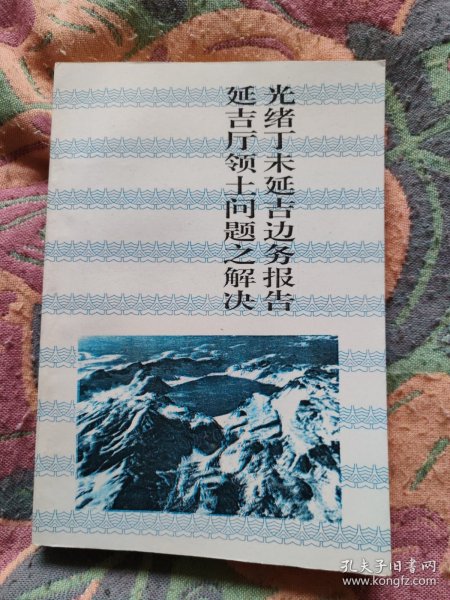 光绪丁未延吉边务报告
延吉厅领土问题之解决
孔夫子旧书网
www.kongfz.com